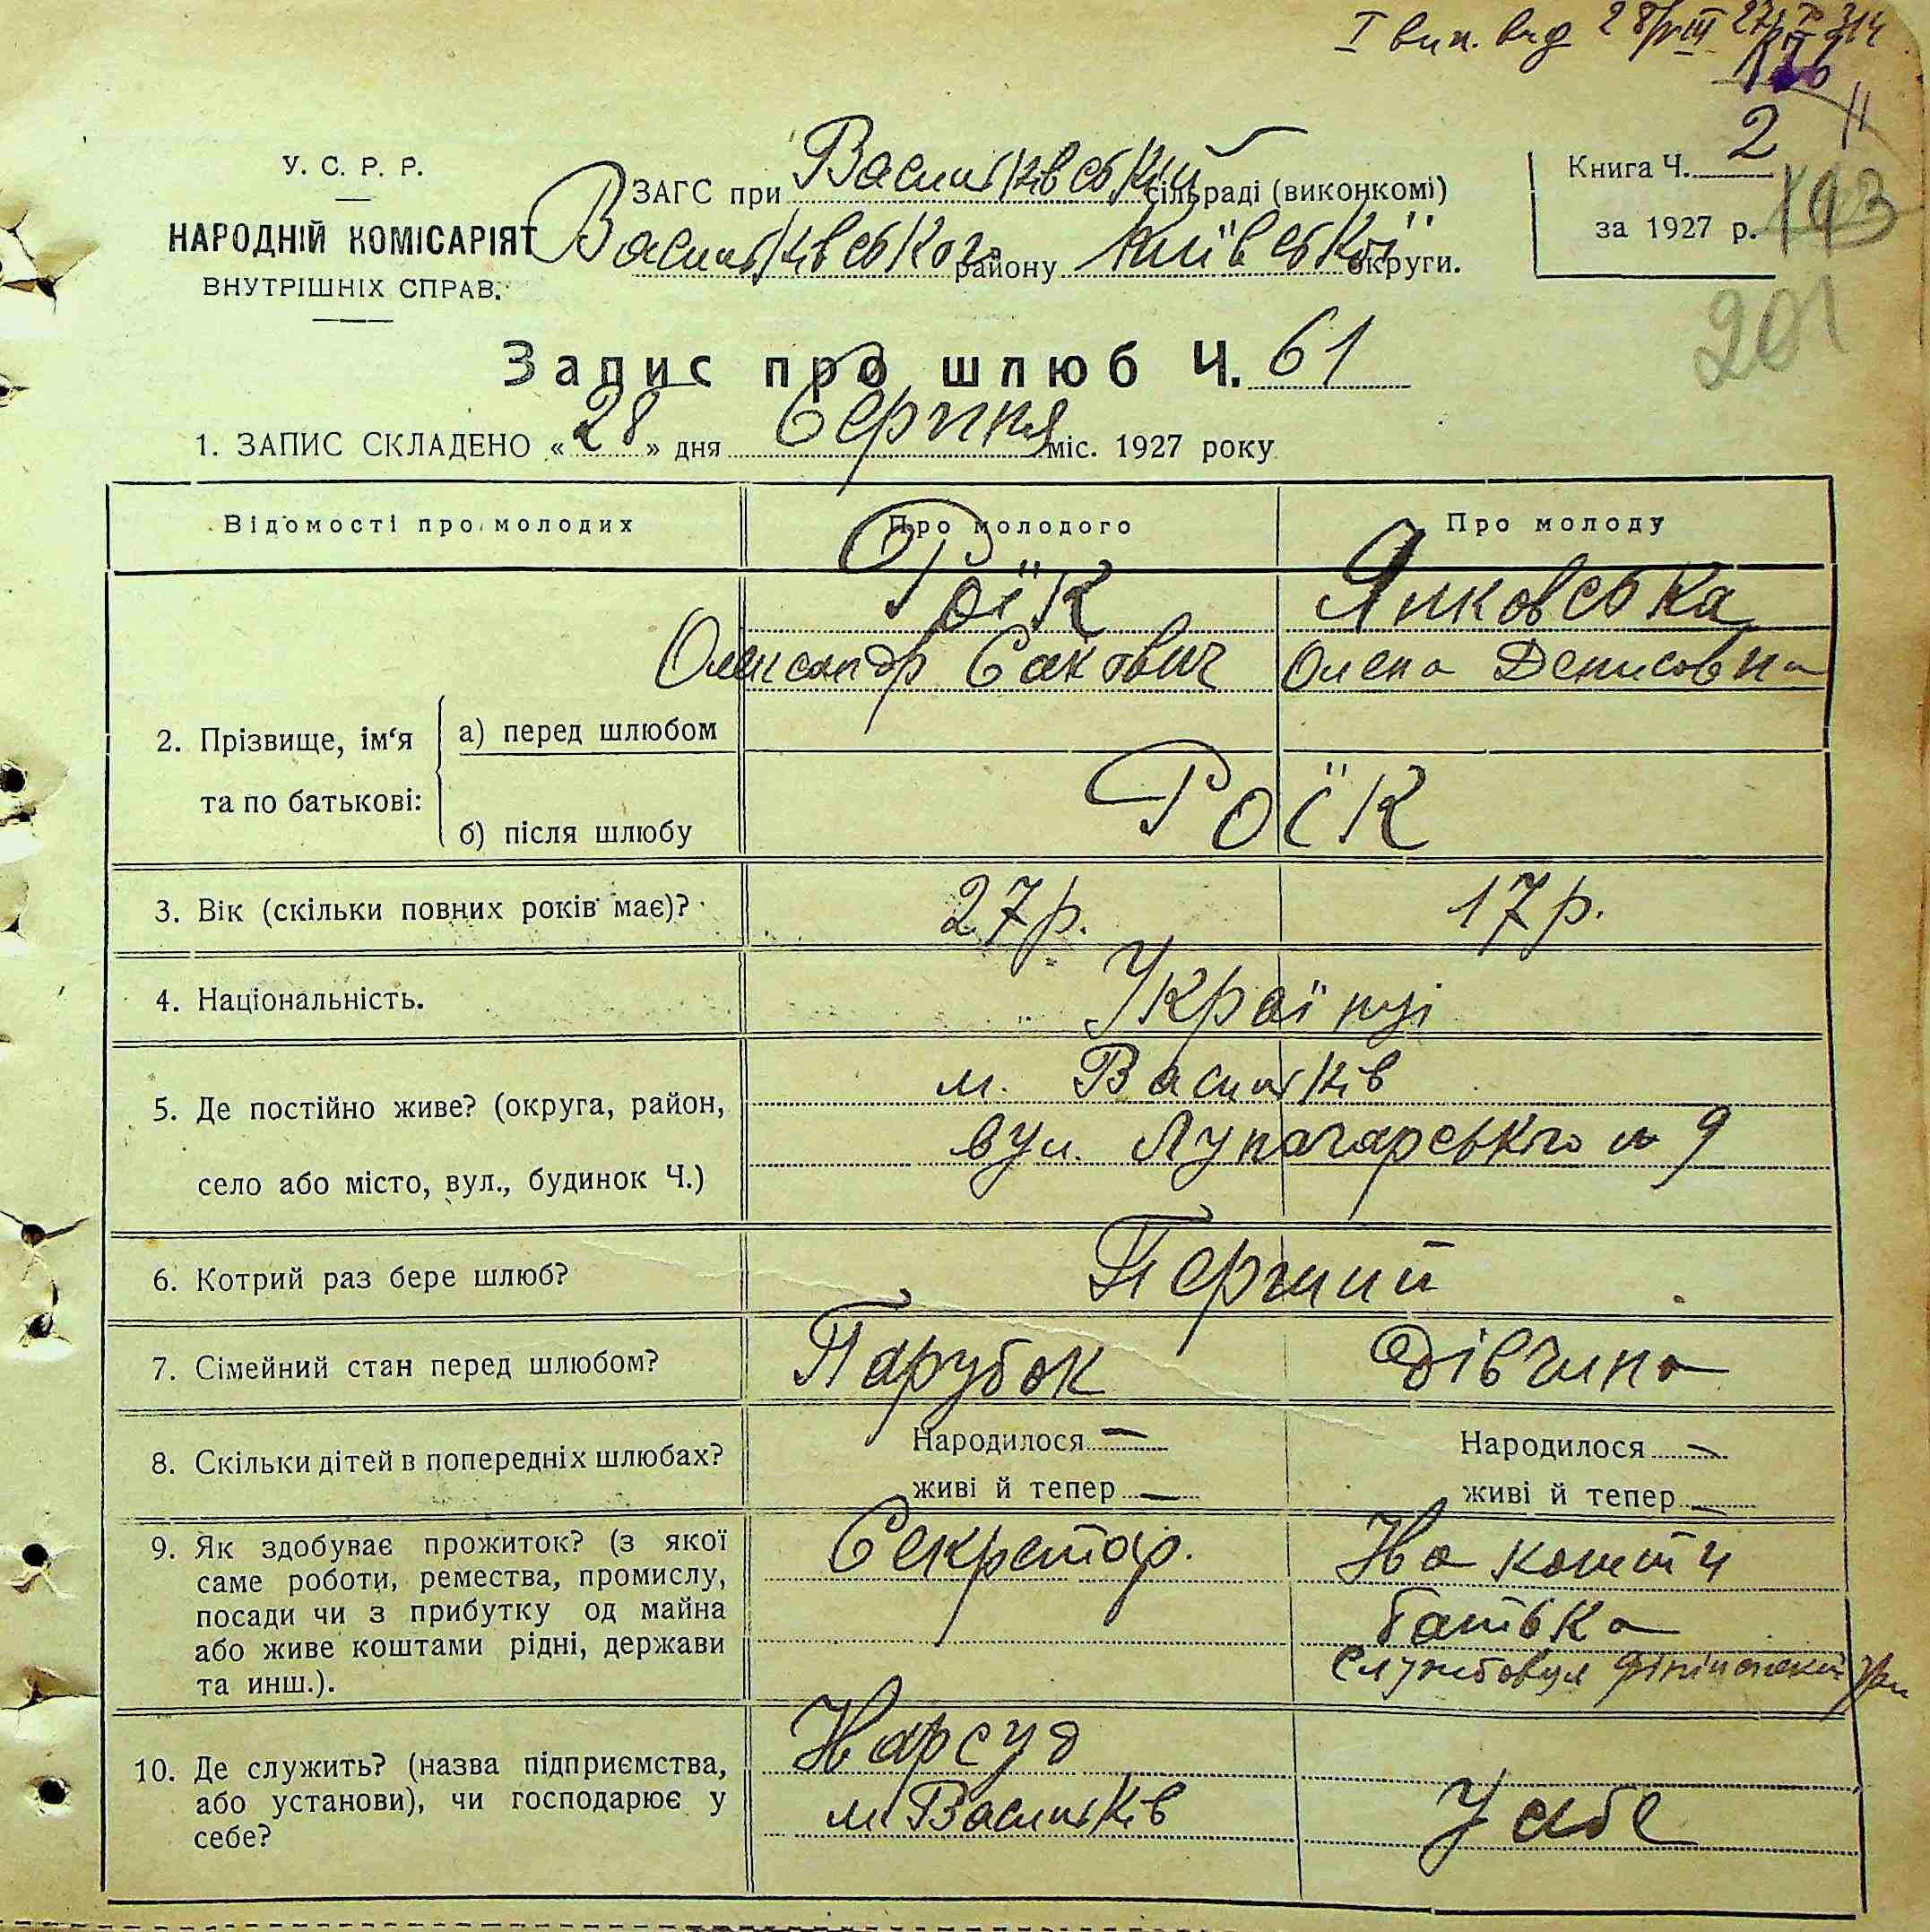 І вип. від 28/VIII 27р.
У. С. Р. Р.
НАРОДНІЙ КОМІСАРІЯТ
ВНУТРІШНІХ СПРАВ.
ЗАГС при Васильківській сільраді (виконкомі)
Васильківського району Київської округи.
Книга Ч. 2
за 1927 р.
193
201
Запис про шлюб Ч. 61
1. ЗАПИС СКЛАДЕНО «28» дня Серпня міс. 1927 року
Відомості про молодих Про молодого Про молоду
Роїк Янковська
Олександр Сакович Олена Денисовна
2. Прізвище, ім'я та по батькові:
а) перед шлюбом
б) після шлюбу Роїк
3. Вік (скільки повних років має)? 27 р. 17 р.
4. Національність. Українці
5. Де постійно живе? (округа, район, м. Васильків
село або місто, вул., будинок Ч.) вул. Луначарського № 9
6. Котрий раз бере шлюб? Перший
7. Сімейний стан перед шлюбом? Парубок Дівчина
8. Скільки дітей в попередніх шлюбах? Народилося — Народилося —
живі й тепер — живі й тепер —
9. Як здобуває прожиток? (з якої Секретар. На кошти
саме роботи, ремества, промислу,
посади чи з прибутку од майна батька
або живе коштами рідні, держави Службовця
та инш.).
10. Де служить? (назва підприємства, Нарсуд
або установи), чи господарює у м. Васильків У себе
себе?